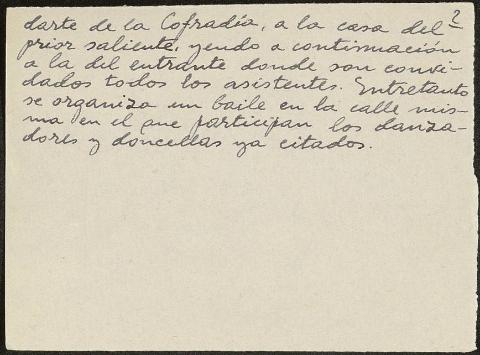 2
darte de la Cofradía, a la casa del
prior saliente, yendo a continuación
a la del entrante donde son convi-
dados todos los asistentes. Entretanto
se organiza un baile en la calle mis-
ma en el que participan los danza-
dores y doncellas ya citados.